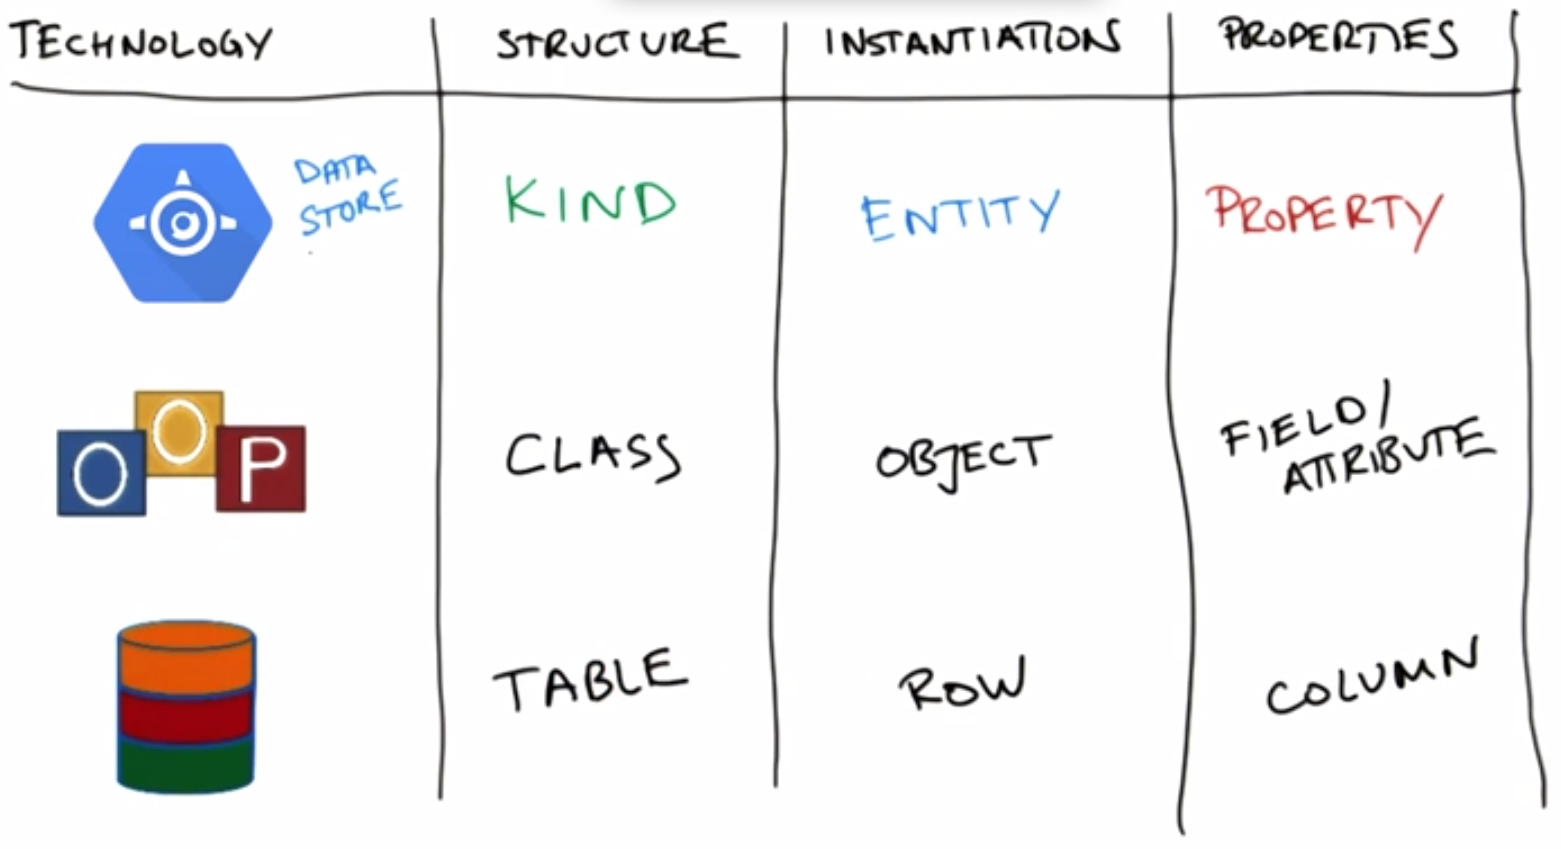 TECHNOLOGY STRUCTURE INSTANTIATION PROPERTIES
DATA
STORE
KIND ENTITY PROPERTY
O O P
CLASS OBJECT FIELD/
ATTRIBUTE
TABLE ROW COLUMN